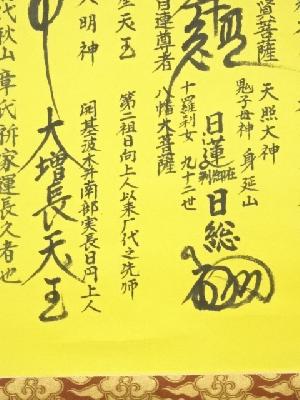 菩薩
天照大神
鬼子母神 身延山
日蓮 在御判
日総
十羅刹女 九十二世
八幡大菩薩
連尊者
天王
第二祖日向上人以来代之先師
大明神
開基波木井南部実長日円上人
大増長天王
代秋山章氏祈家運長久者也